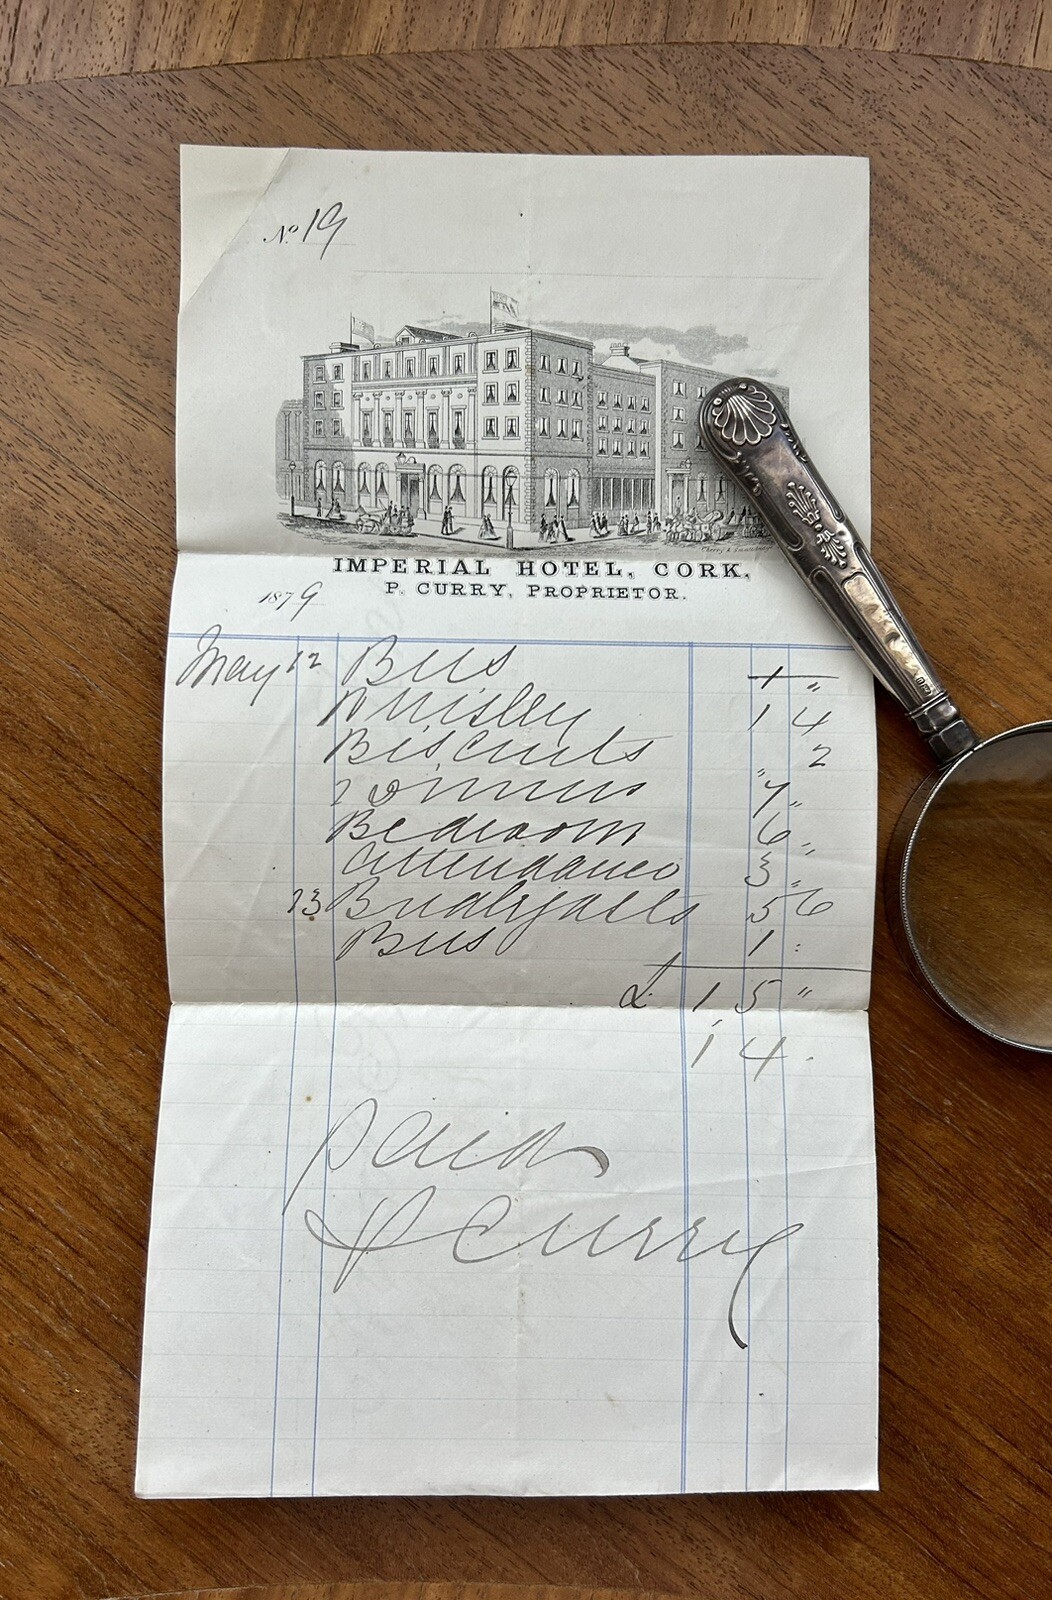 No. 19
IMPERIAL HOTEL, CORK,
P. CURRY, PROPRIETOR.
1879
May 12 Bus 1 "
Whiskey 1 4
Biscuits 2
2 Dinners " 7 "
Bedroom 6 "
Attendance 3 "
13 Breakfasts 5 6
Bus 1 :
£ 1 5 "
1 4 .
Paid
P Curry